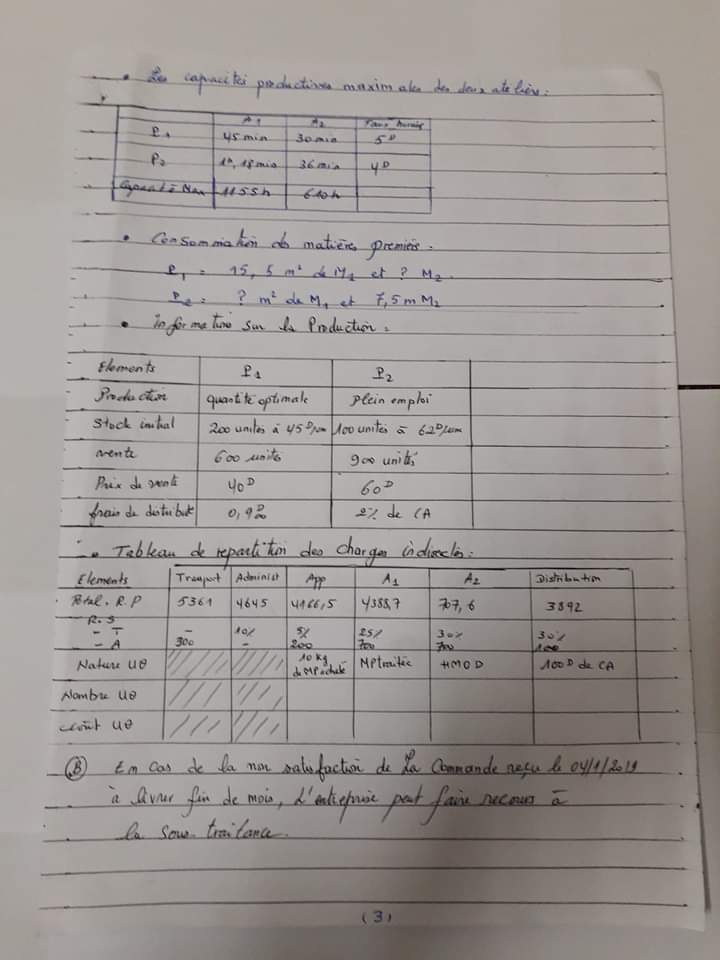 • Les capacités productives maximales des deux ateliers :
A1 A2 Taux horaire
P1 45 min 30 min 5D
P2 1h, 18 min 36 min 4D
Capacité Max 1155h 610h
• Consommation de matières premières.
P1 = 15,5 m² de M1 et ? M2.
P2 = ? m² de M1 et 7,5 m M2
• Information sur la Production :
Elements P1 P2
Production quantité optimale Plein emploi
Stock initial 200 unités à 45D/um 100 unités à 62D/um
vente 600 unités 900 unités
Prix de vente 40D 60D
frais de distribut 2% de CA
• Tableau de repartition des charges indirectes :
Elements Transport Administ App A1 A2 Distribution
Total. R.P 5361 4645 4166,5 4388,7 707,6 3892
R.S
- T - 10% 5% 25% 30% 30%
- A 300 - 200 700 700 100
Nature UO 10 kg de MP acheté MP traitée HMOD 100D de CA
Nombre UO
Coût UO
B En Cas de la non satisfaction de La Commande reçu le 04/1/2019
à livrer fin de mois, L'entreprise peut faire recours à
la sous traitance.
(3)